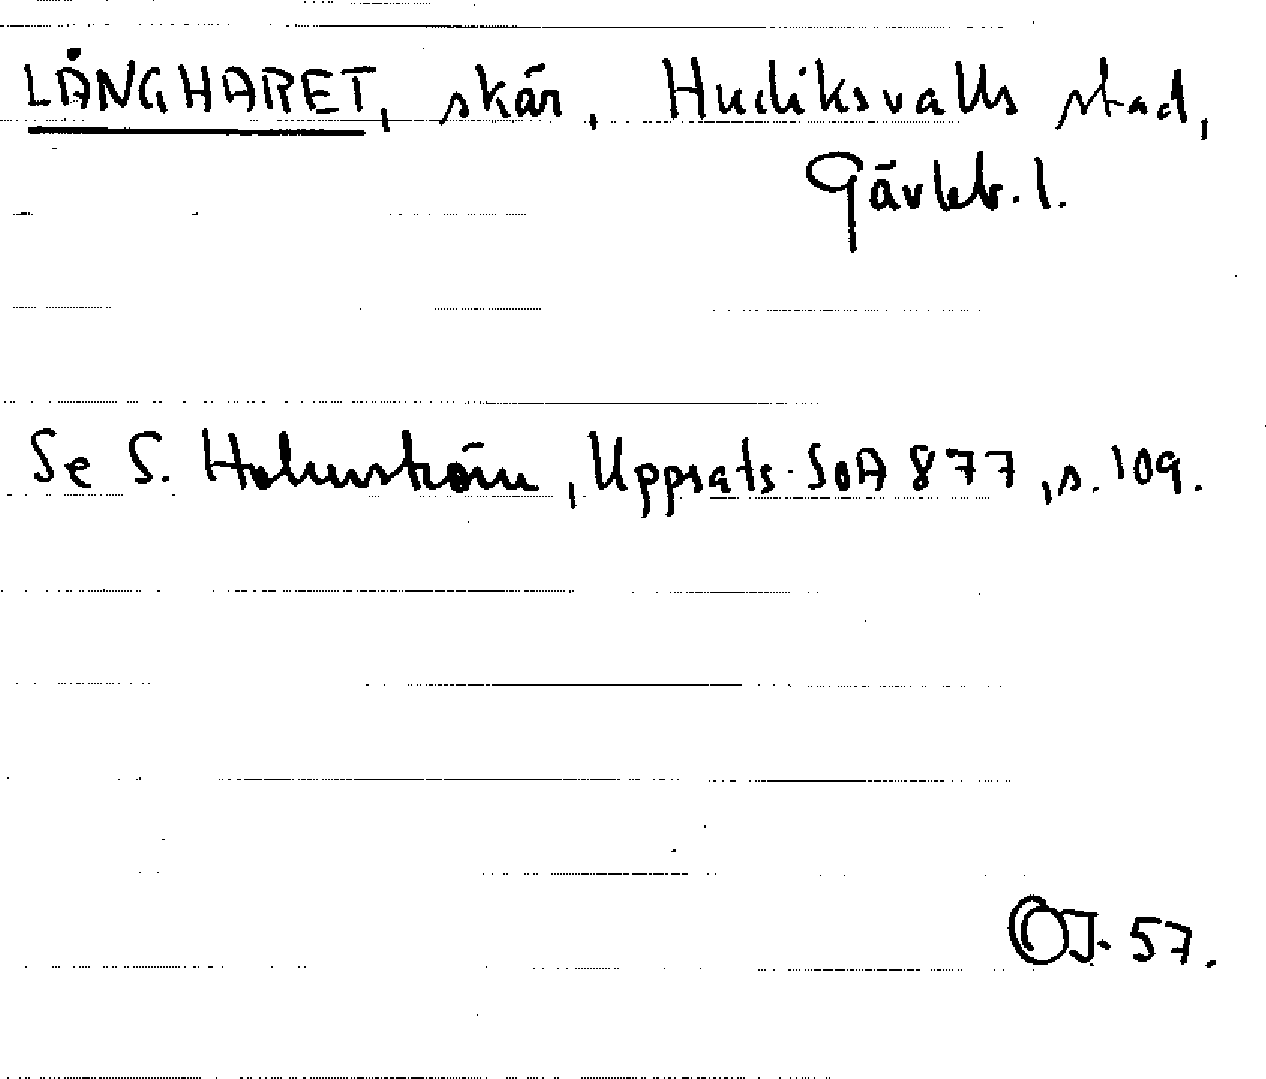 LÅNGHARET, skär, Hudiksvalls stad,
Gävleb. l.
Se S. Holmström, Uppsats. SOA 877, s. 109.
OJ. 57.